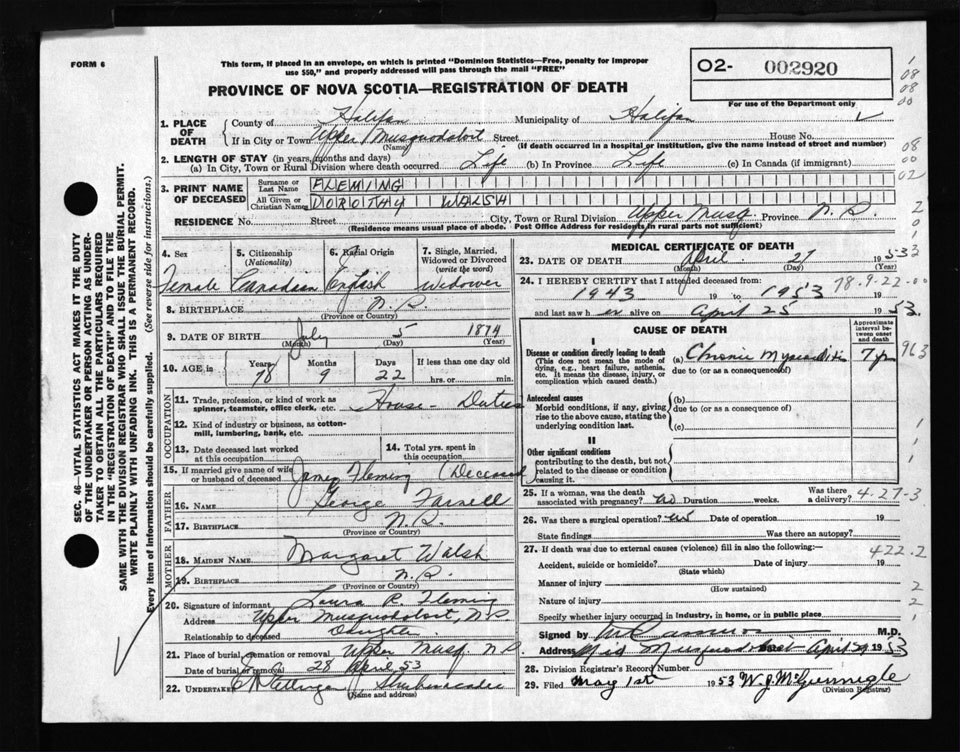 FORM 6
This form, if placed in an envelope, on which is printed "Dominion Statistics—Free, penalty for improper
use $50," and properly addressed will pass through the mail "FREE"
O2- 002920
For use of the Department only
PROVINCE OF NOVA SCOTIA—REGISTRATION OF DEATH
1. PLACE OF DEATH
County of Halifax Municipality of Halifax
If in City or Town Upper Musquodoboit Street House No.
(Name) (If death occurred in a hospital or institution, give the name instead of street and number)
2. LENGTH OF STAY (in years, months and days)
(a) In City, Town or Rural Division where death occurred Life (b) In Province Life (c) In Canada (if immigrant)
3. PRINT NAME OF DECEASED
Surname or Last Name FLEMING
All Given or Christian Names DOROTHY WALSH
RESIDENCE No. Street City, Town or Rural Division Upper Musq. Province N.S.
(Residence means usual place of abode. Post Office Address for residents in rural parts not sufficient)
4. Sex Female
5. Citizenship (Nationality) Canadian
6. Racial Origin English
7. Single, Married, Widowed or Divorced (write the word) Widower
8. BIRTHPLACE N.S.
(Province or Country)
9. DATE OF BIRTH July 5 1874
(Month) (Day) (Year)
10. AGE, in Years 78 Months 9 Days 22 If less than one day old
hrs. or min.
OCCUPATION
11. Trade, profession, or kind of work as spinner, teamster, office clerk, etc. House-Duties
12. Kind of industry or business, as cotton-mill, lumbering, bank, etc.
13. Date deceased last worked at this occupation
14. Total yrs. spent in this occupation
15. If married give name of wife or husband of deceased James Fleming (Deceased)
FATHER
16. NAME George Farnell
17. BIRTHPLACE N.S.
(Province or Country)
MOTHER
18. MAIDEN NAME Margaret Walsh
19. BIRTHPLACE N.S.
(Province or Country)
20. Signature of informant Laura P. Fleming
Address Upper Musquodoboit, N.S.
Relationship to deceased Daughter
21. Place of burial, cremation or removal Upper Musq. N.S.
Date of burial or removal 28 April 53
22. UNDERTAKER Shubenacadie
(Name and address)
MEDICAL CERTIFICATE OF DEATH
23. DATE OF DEATH April 27 1953
(Month) (Day)
24. I HEREBY CERTIFY that I attended deceased from
1943 19 to 1953 78-9-22-00
and last saw er alive on April 25 1953.
CAUSE OF DEATH
Approximate interval between onset and death
I
Disease or condition directly leading to death (a) Chronic Myocarditis 7 yr
(This does not mean the mode of dying, e.g., heart failure, asthenia, etc. It means the disease, injury, or complication which caused death.)
due to (or as a consequence of)
Antecedent causes
Morbid conditions, if any, giving rise to the above cause, stating the underlying condition last.
(b)
due to (or as a consequence of)
(c)
II
Other significant conditions
contributing to the death, but not related to the disease or condition causing it.
25. If a woman, was the death associated with pregnancy? no Duration weeks. Was there a delivery? 4-27-3
26. Was there a surgical operation? no Date of operation 19
State findings Was there an autopsy?
27. If death was due to external causes (violence) fill in also the following:— 422.2
Accident, suicide or homicide? Date of injury 19
(State which)
Manner of injury
(How sustained)
Nature of injury
Specify whether injury occurred in industry, in home, or in public place
Signed by M.D.
Address Mid Musquodoboit April 29 1953
28. Division Registrar's Record Number
29. Filed May 1st 1953 W.J. McGunnigle
(Division Registrar)
SEC. 46—VITAL STATISTICS ACT MAKES IT THE DUTY
OF THE UNDERTAKER OR PERSON ACTING AS UNDER-
TAKER TO OBTAIN ALL THE PARTICULARS REQUIRED
IN THE "REGISTRATION OF DEATH" AND TO FILE THE
SAME WITH THE DIVISION REGISTRAR WHO SHALL ISSUE THE BURIAL PERMIT.
WRITE PLAINLY WITH UNFADING INK. THIS IS A PERMANENT RECORD.
Every item of information should be carefully supplied. (See reverse side for instructions.)